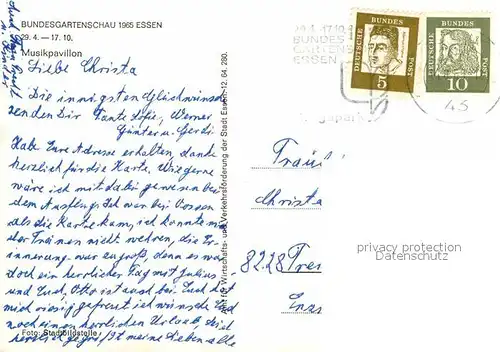 BUNDESGARTENSCHAU 1965 ESSEN
29. 4. — 17. 10.
Musikpavillon
Liebe Christa
Die innigsten Glückwünsche
senden Dir Tante Sofie, Werner
Günter u. Gerdi.
Habe Eure Adresse erhalten, danke
herzlich für die Karte. Wie gerne
wäre ich mit dabei gewesen bei
dem Ausflug. Ich war bei Vossen
als die Karte kam, ich konnte mich
der Tränen nicht wehren, die Er-
innerung war zu groß, denn es war
doch ein herrlicher Tag mit Julius
und Euch, Otto ist auch bei Euch hat
mich riesig gefreut ich wünsche Euch
noch einen herrlichen Urlaub, seid
herzlich gegrüßt meine Lieben alle
Foto: Stadtbildstelle
Amt für Wirtschafts- und Verkehrsförderung der Stadt Essen 12. 64. 280.
29.4.-17.10.
BUNDES
GARTENS
ESSEN
DEUTSCHE BUNDESPOST
5
DEUTSCHE BUNDESPOST
10
45
Fräul
Christa
8228 Frei
privacy protection
Datenschutz